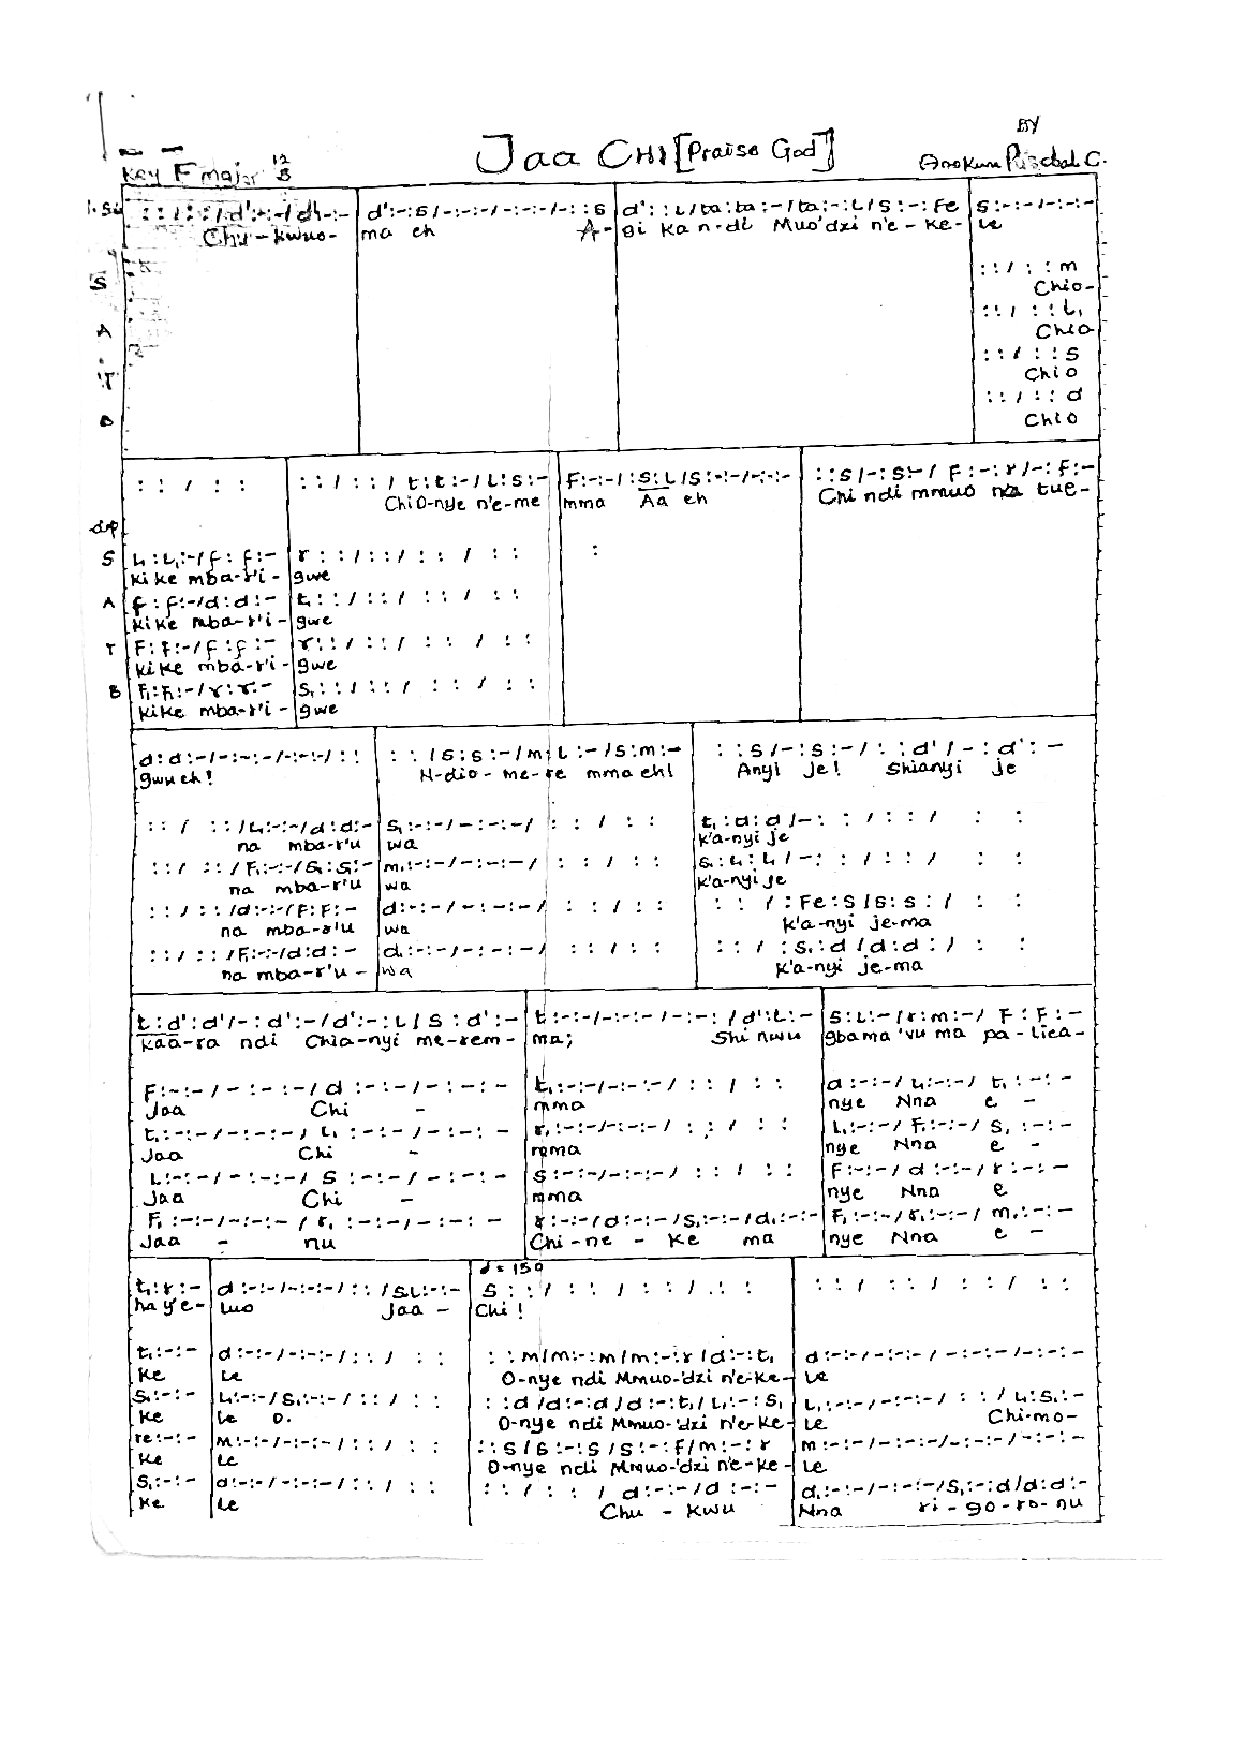 BY
Jaa CHI [Praise God]
Key F major 12/8
: : / : : / d':-:-/d':-:- | d':-:s/-:-:-/-:-:-/-: :s | d': :L/ta:ta:-/ta:-:L/s:-:fe | s:-:-/-:-:-
Chu-kwuo- | ma eh A- | gi ka n-di Muo'dzi n'e-ke- | le
S
: : / : : m
Chio-
A
: : / : : L,
Chio
T
: : / : : s
Chio
B
: : / : : d
Chio
: : / : : | : : / : : / t:t:-/L:s:- | F:-:-/:s:L/s:-:-/-:-:- | : :s/-:s:-/F:-:r/-:f:-
ChiO-nye n'e-me | mma Aa eh | Chi ndi mmuo na tue-
S L,:L,:-/f:f:- | r : : / : : / : : / : :
kike mba-r'i- | gwe
A f:f:-/d:d:- | t,: : / : : / : : / : :
kike mba-r'i- | gwe
T F:f:-/f:f:- | r: : / : : / : : / : :
kike mba-r'i- | gwe
B F,:F,:-/r:r:- | s,: : / : : / : : / : :
kike mba-r'i- | gwe
d:d:-/-:-:-/-:-:-/: : | : : /s:s:-/m:L:-/s:m:- | : :s/-:s:-/: :d'/-:d':-
gwu eh! | N-dio-me-re mma eh! | Anyi je! Shianyi je
: : / : : /L,:-:-/d:d:- | s,:-:-/-:-:-/ : : / : : | t,:d:d/-: : / : : / : :
na mba-r'u | wa | k'a-nyi je
: : / : : /F,:-:-/s,:s,:- | m,:-:-/-:-:-/ : : / : : | s,:L,:L,/-: : / : : / : :
na mba-r'u | wa | k'a-nyi je
: : / : : /d:-:-/F:F:- | d:-:-/-:-:-/ : : / : : | : : / :Fe:s/s:s: / : :
na mba-r'u | wa | k'a-nyi je-ma
: : / : : /F,:-:-/d:d:- | d,:-:-/-:-:-/ : : / : : | : : / :s,:d/d:d: / : :
na mba-r'u- | wa | k'a-nyi je-ma
t:d':d'/-:d':-/d':-:L/s:d':- | t:-:-/-:-:-/-:-: /d':t:- | s:L:-/r:m:-/F:F:-
kaa-ra ndi Chia-nyi me-rem- | ma; Shi nwu | gbama 'vu ma pa-liea-
F:-:-/-:-:-/d:-:-/-:-:- | t,:-:-/-:-:-/ : : / : : | d:-:-/L,:-:-/t,:-:-
Jaa Chi - | mma | nye Nna e -
t,:-:-/-:-:-/L,:-:-/-:-:- | r,:-:-/-:-:-/ : : / : : | L,:-:-/F,:-:-/s,:-:-
Jaa Chi - | mma | nye Nna e -
L:-:-/-:-:-/s:-:-/-:-:- | s:-:-/-:-:-/ : : / : : | F:-:-/d:-:-/r:-:-
Jaa Chi - | mma | nye Nna e
F,:-:-/-:-:-/r,:-:-/-:-:- | r:-:-/d:-:-/s,:-:-/d,:-:- | F,:-:-/r,:-:-/m,:-:-
Jaa - nu | Chi-ne-ke ma | nye Nna e -
♩= 150
t,:r:- | d:-:-/-:-:-/: : /s:L:-:- | s : : / : : / : : / : : | : : / : : / : : / : :
ha y'e- | luo Jaa- | Chi!
t,:-:- | d:-:-/-:-:-/: : / : : | : :m/m:-:m/m:-:r/d:-:t, | d:-:-/-:-:-/-:-:-/-:-:-
ke | le | O-nye ndi Mmuo-'dzi n'e-ke- | le
s,:-:- | L,:-:-/s,:-:-/: : / : : | : :d/d:-:d/d:-:t,/L,:-:s, | L,:-:-/-:-:-/ : : /L,:s,:-
ke | le o. | O-nye ndi Mmuo-'dzi n'e-ke- | le Chi-mo-
re:-:- | m:-:-/-:-:-/: : / : : | : :s/s:-:s/s:-:f/m:-:r | m:-:-/-:-:-/-:-:-/-:-:-
ke | le | O-nye ndi Mmuo-'dzi n'e-ke- | le
s,:-:- | d:-:-/-:-:-/: : / : : | : : / : : /d:-:-/d:-:- | d,:-:-/-:-:-/s,:-:d/d:d:-
ke | le | Chu-kwu | Nna ri-go-ro-nu